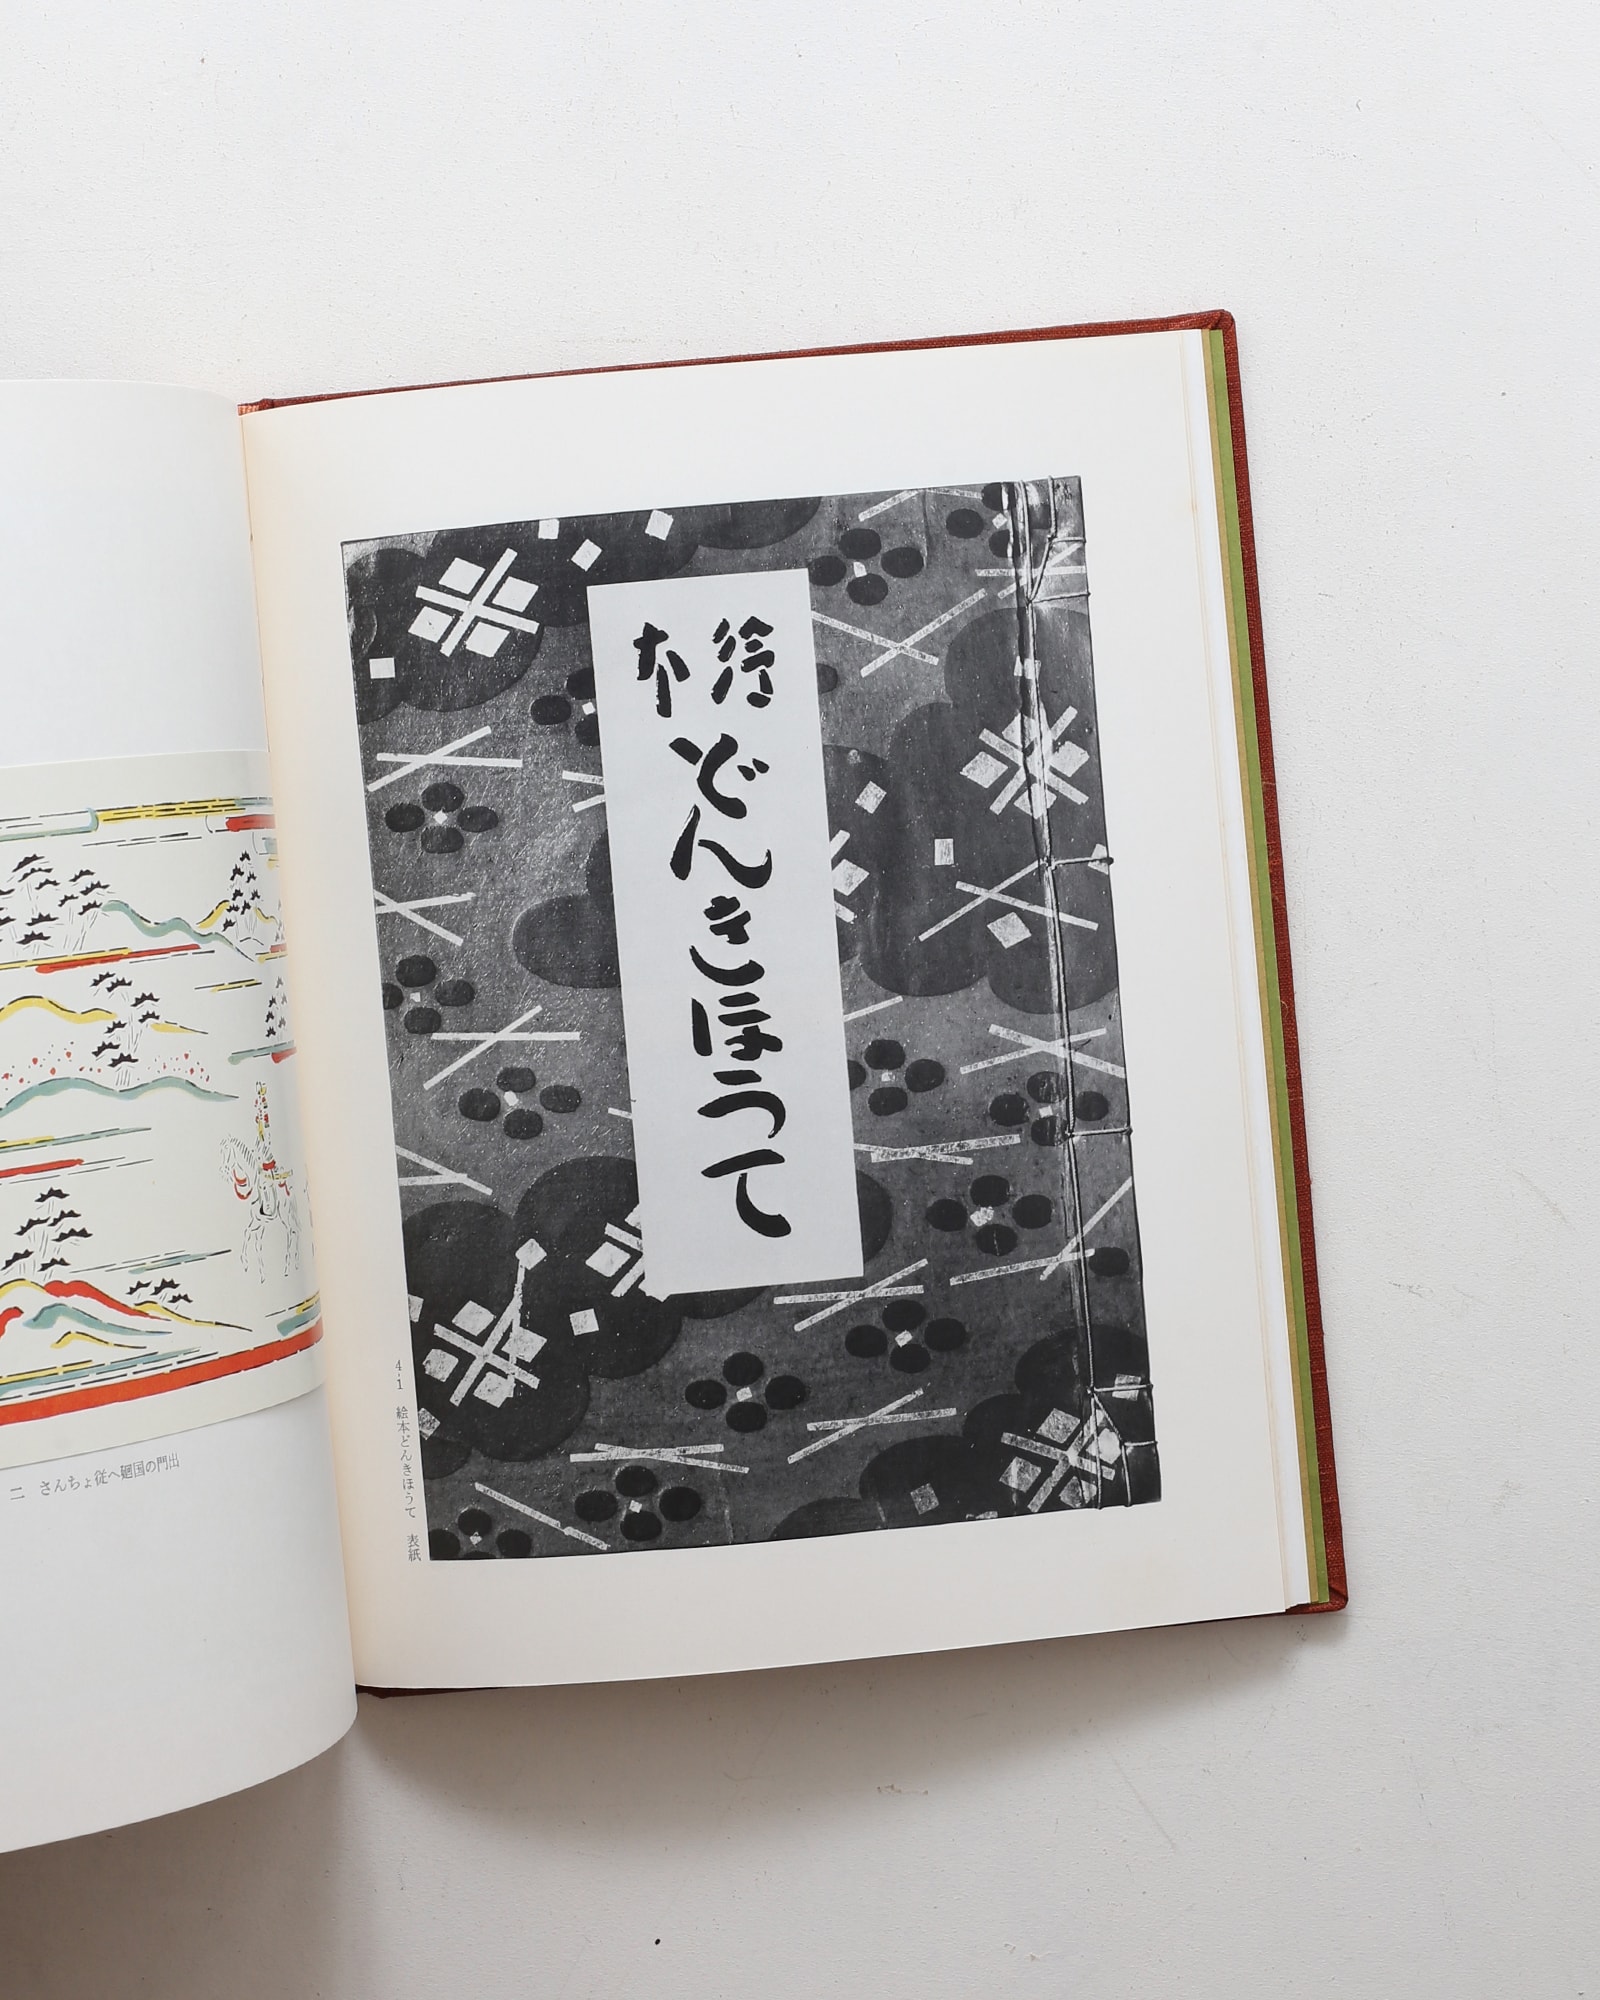 絵本
どんきほうて
4-1 絵本どんきほうて 表紙
二 さんちょ従へ廻国の門出